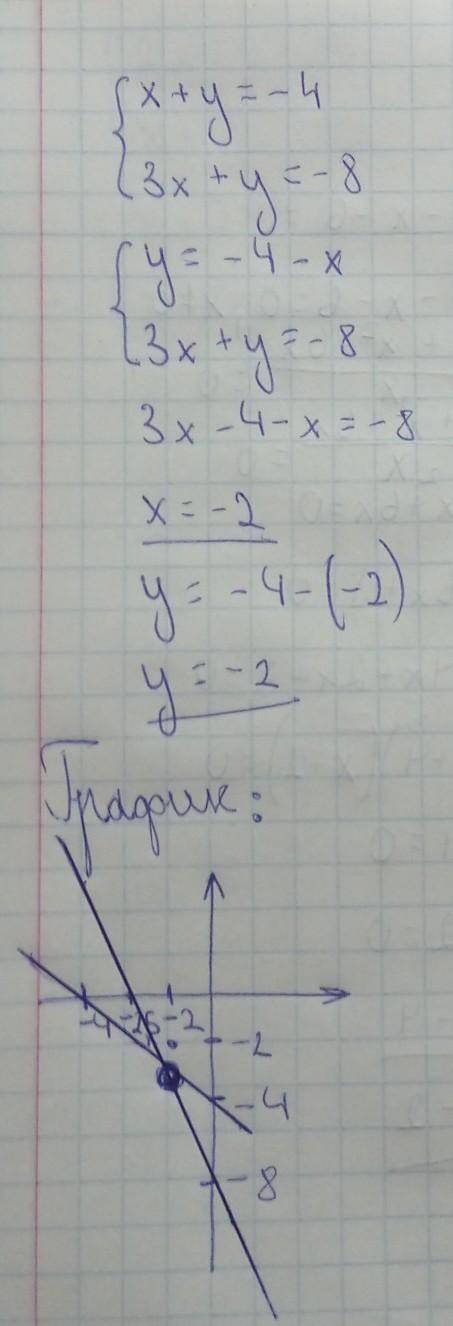 x + y = -4
3x + y = -8
y = -4 - x
3x + y = -8
3x - 4 - x = -8
x = -2
y = -4 - (-2)
y = -2
График:
-4 -2
-2
-4
-8